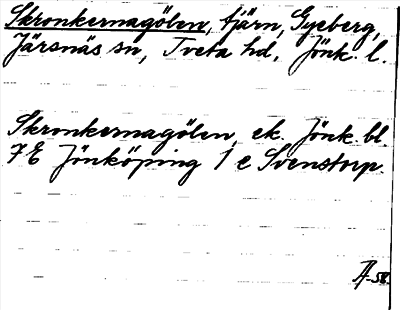 Skronkernagölen, tjärn, Gyeberg,
Järsnäs sn, Tveta hd, Jönk. l.
Skronkernagölen, ek. Jönk. bl.
7E Jönköping 1 e Svenstorp.